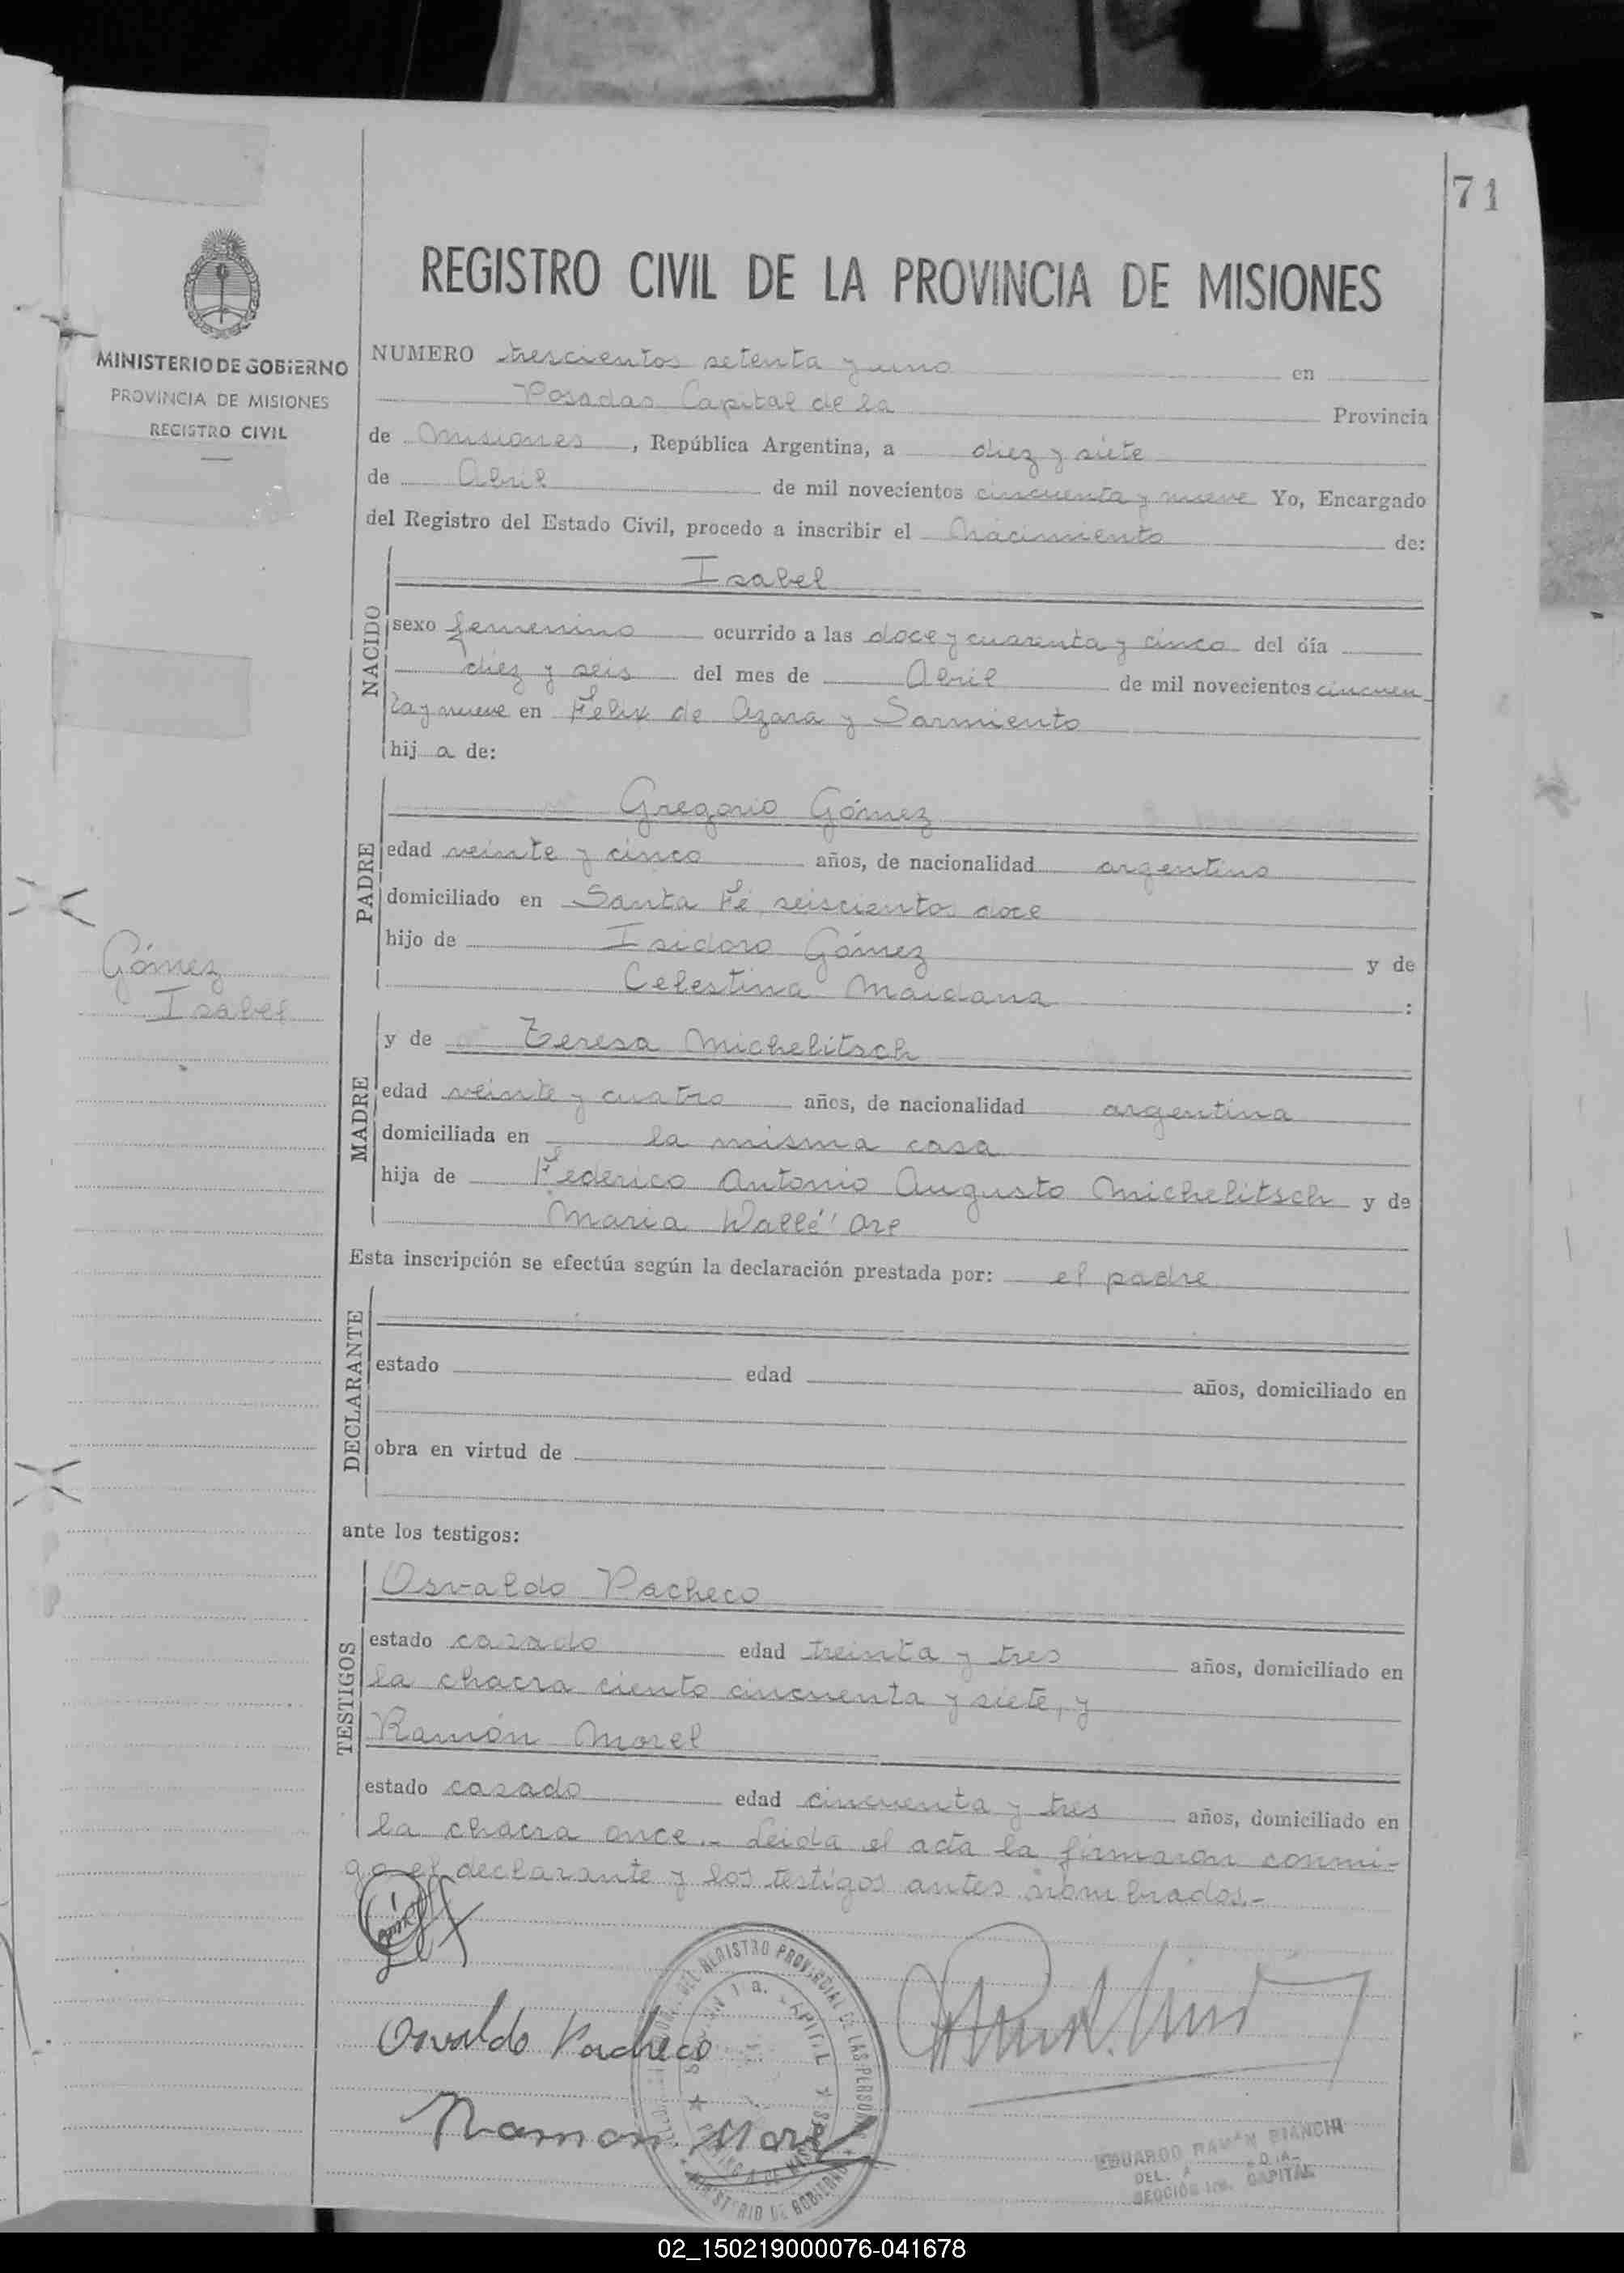 71
REGISTRO CIVIL DE LA PROVINCIA DE MISIONES
MINISTERIO DE GOBIERNO
PROVINCIA DE MISIONES
REGISTRO CIVIL
NUMERO trescientos setenta y uno en
Posadas Capital de la Provincia
de Misiones, República Argentina, a diez y siete
de Abril de mil novecientos cincuenta y nueve Yo, Encargado
del Registro del Estado Civil, procedo a inscribir el Nacimiento de:
NACIDO
Isabel
sexo femenino ocurrido a las doce y cuarenta y cinco del día
diez y seis del mes de Abril de mil novecientos cincuen
ta y nueve en Felix de Azara y Sarmiento
hija de:
PADRE
Gregorio Gómez
edad veinte y cinco años, de nacionalidad argentino
domiciliado en Santa Fé seiscientos doce
hijo de Isidoro Gómez y de
Celestina Maidana :
Gómez
Isabel
MADRE
y de Teresa Michelitsch
edad veinte y cuatro años, de nacionalidad argentina
domiciliada en la misma casa
hija de Federico Antonio Augusto Michelitsch y de
Maria Wallé
Esta inscripción se efectúa según la declaración prestada por: el padre
DECLARANTE
estado edad años, domiciliado en
obra en virtud de
ante los testigos:
TESTIGOS
Osvaldo Pacheco
estado casado edad treinta y tres años, domiciliado en
la chacra ciento cincuenta y siete, y
Ramón Morel
estado casado edad cincuenta y tres años, domiciliado en
la chacra once.- Leida el acta la firmaron conmi-
go el declarante y los testigos antes nombrados.-
Osvaldo Pacheco
Ramon Morel
REGISTRO PROVINCIAL DE LAS PERSONAS
MINISTERIO DE GOBIERNO
EDUARDO RAMON BIANCHI
SECCIÓN CAPITAL
02_150219000076-041678